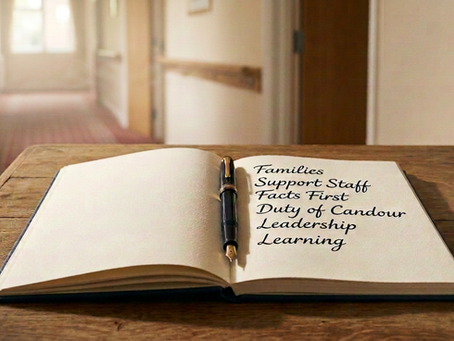 Families
Support Staff
Facts First
Duty of Candour
Leadership
Learning